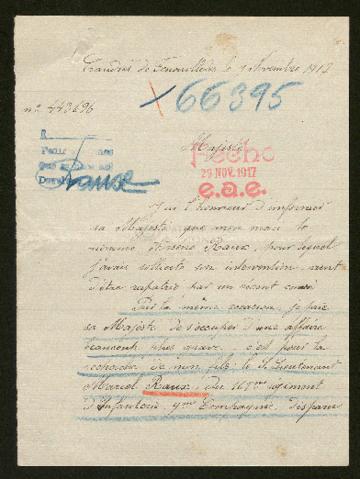 Caudiès de Fenouillèdes le 9 Novembre 1917
no 443696
X 66395
Majesté
Fecho
29 NOV. 1917
e.a.e.
R
France
J'ai l'honneur d'informer
sa Majesté que mon mari le
nommé Arsène Raux, pour lequel
j'avais sollicité son intervention, vient
d'être rapatrié par un récent convoi
Par la même occasion, je prie
sa Majesté de s'occuper d'une affaire
beaucoup plus grave, c'est pour la
recherche de mon fils le S. Lieutenant
Marcel Raux, du régiment
d'Infanterie, 9me Compagnie, disparu